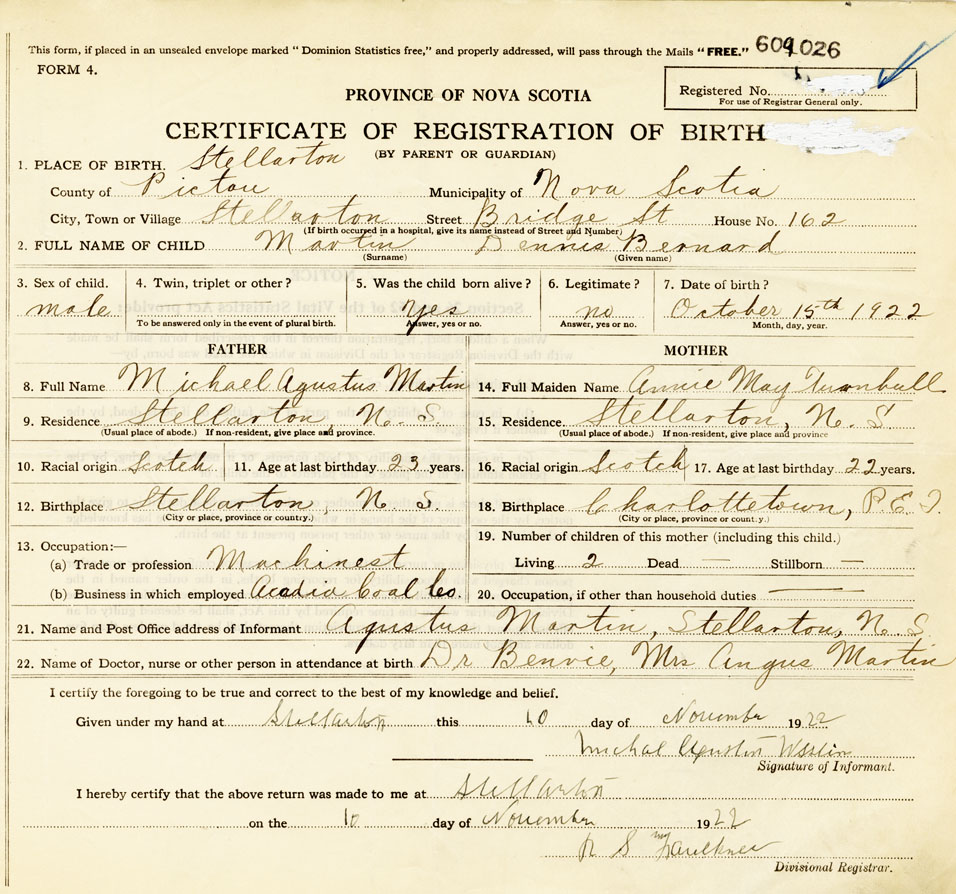 This form, if placed in an unsealed envelope marked "Dominion Statistics free," and properly addressed, will pass through the Mails "FREE." 609026
FORM 4.
Registered No.
For use of Registrar General only.
PROVINCE OF NOVA SCOTIA
CERTIFICATE OF REGISTRATION OF BIRTH
(BY PARENT OR GUARDIAN)
1. PLACE OF BIRTH. Stellarton
County of Pictou Municipality of Nova Scotia
City, Town or Village Stellarton Street Bridge St House No. 162
(If birth occurred in a hospital, give its name instead of Street and Number)
2. FULL NAME OF CHILD Martin Dennis Bernard
(Surname) (Given name)
3. Sex of child. 4. Twin, triplet or other? 5. Was the child born alive? 6. Legitimate? 7. Date of birth?
male yes no October 15th 1922
To be answered only in the event of plural birth. Answer, yes or no. Answer, yes or no. Month, day, year.
FATHER MOTHER
8. Full Name Michael Agustus Martin 14. Full Maiden Name Annie May Turnbull
9. Residence Stellarton, N. S. 15. Residence. Stellarton, N. S
(Usual place of abode.) If non-resident, give place and province. (Usual place of abode.) If non-resident, give place and province
10. Racial origin Scotch 11. Age at last birthday 23 years. 16. Racial origin Scotch 17. Age at last birthday 22 years.
12. Birthplace Stellarton, N. S. 18. Birthplace Charlottetown, P. E. I.
(City or place, province or country.) (City or place, province or country.)
13. Occupation:— 19. Number of children of this mother (including this child.)
(a) Trade or profession Machinest Living 2 Dead — Stillborn —
(b) Business in which employed Acadia Coal Co. 20. Occupation, if other than household duties —
21. Name and Post Office address of Informant Agustus Martin, Stellarton, N. S.
22. Name of Doctor, nurse or other person in attendance at birth Dr Benvie, Mrs Angus Martin
I certify the foregoing to be true and correct to the best of my knowledge and belief.
Given under my hand at Stellarton this 10 day of November 1922
Michal Agustin
Signature of Informant.
I hereby certify that the above return was made to me at Stellarton
on the 10 day of November 1922
Faulkner
Divisional Registrar.